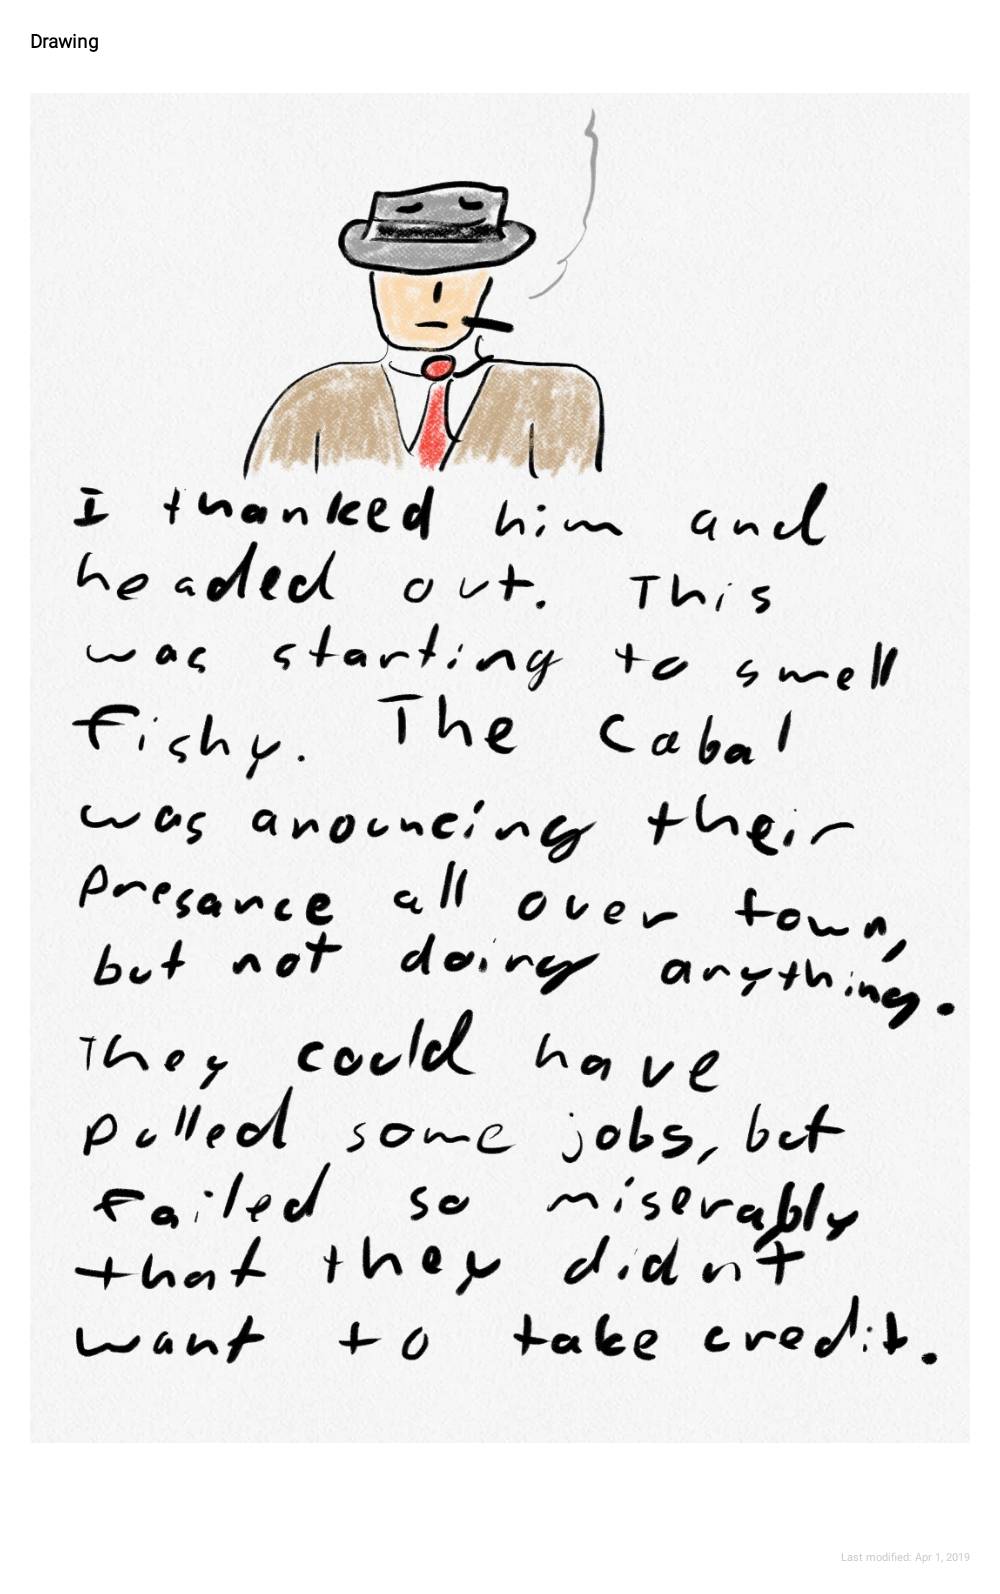 Drawing
I thanked him and
headed out. This
was starting to smell
fishy. The Cabal
was anouncing their
presance all over town,
but not doing anything.
They could have
pulled some jobs, but
failed so miserably
that they didn't
want to take credit.
Last modified: Apr 1, 2019